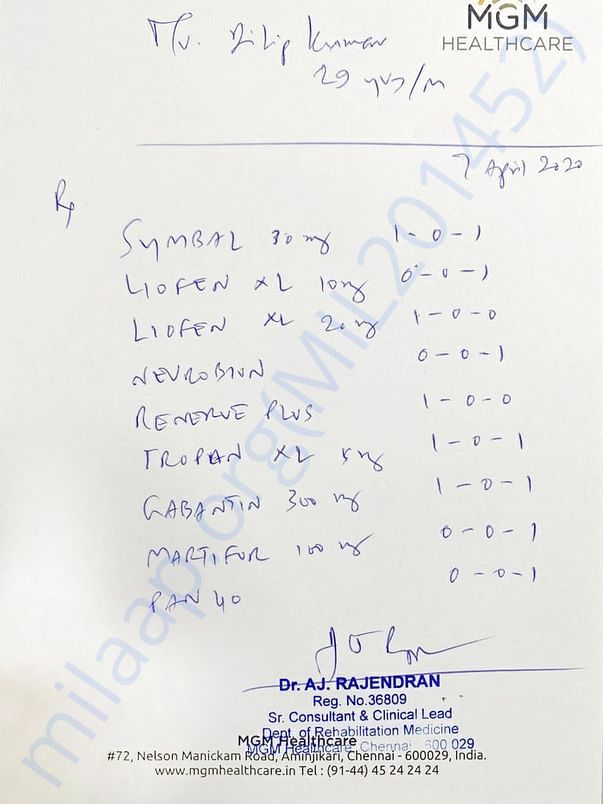 MGM
HEALTHCARE
Mr. Dilip Kumar
29 yrs/m
7 April 2020
Rx
SYMBAL 30 mg 1-0-1
LIOFEN XL 10mg 0-0-1
LIOFEN XL 20mg 1-0-0
NEUROBION 0-0-1
RENERVE PLUS 1-0-0
TROPAN XL 5mg 1-0-1
GABANTIN 300 mg 1-0-1
MARTIFUR 100 mg 0-0-1
PAN 40 0-0-1
Dr. AJ. RAJENDRAN
Reg. No.36809
Sr. Consultant & Clinical Lead
Dept. of Rehabilitation Medicine
MGM Healthcare, Chennai - 600 029
MGM Healthcare
#72, Nelson Manickam Road, Aminjikari, Chennai - 600029, India.
www.mgmhealthcare.in Tel : (91-44) 45 24 24 24
milaap.org(MiL201452)